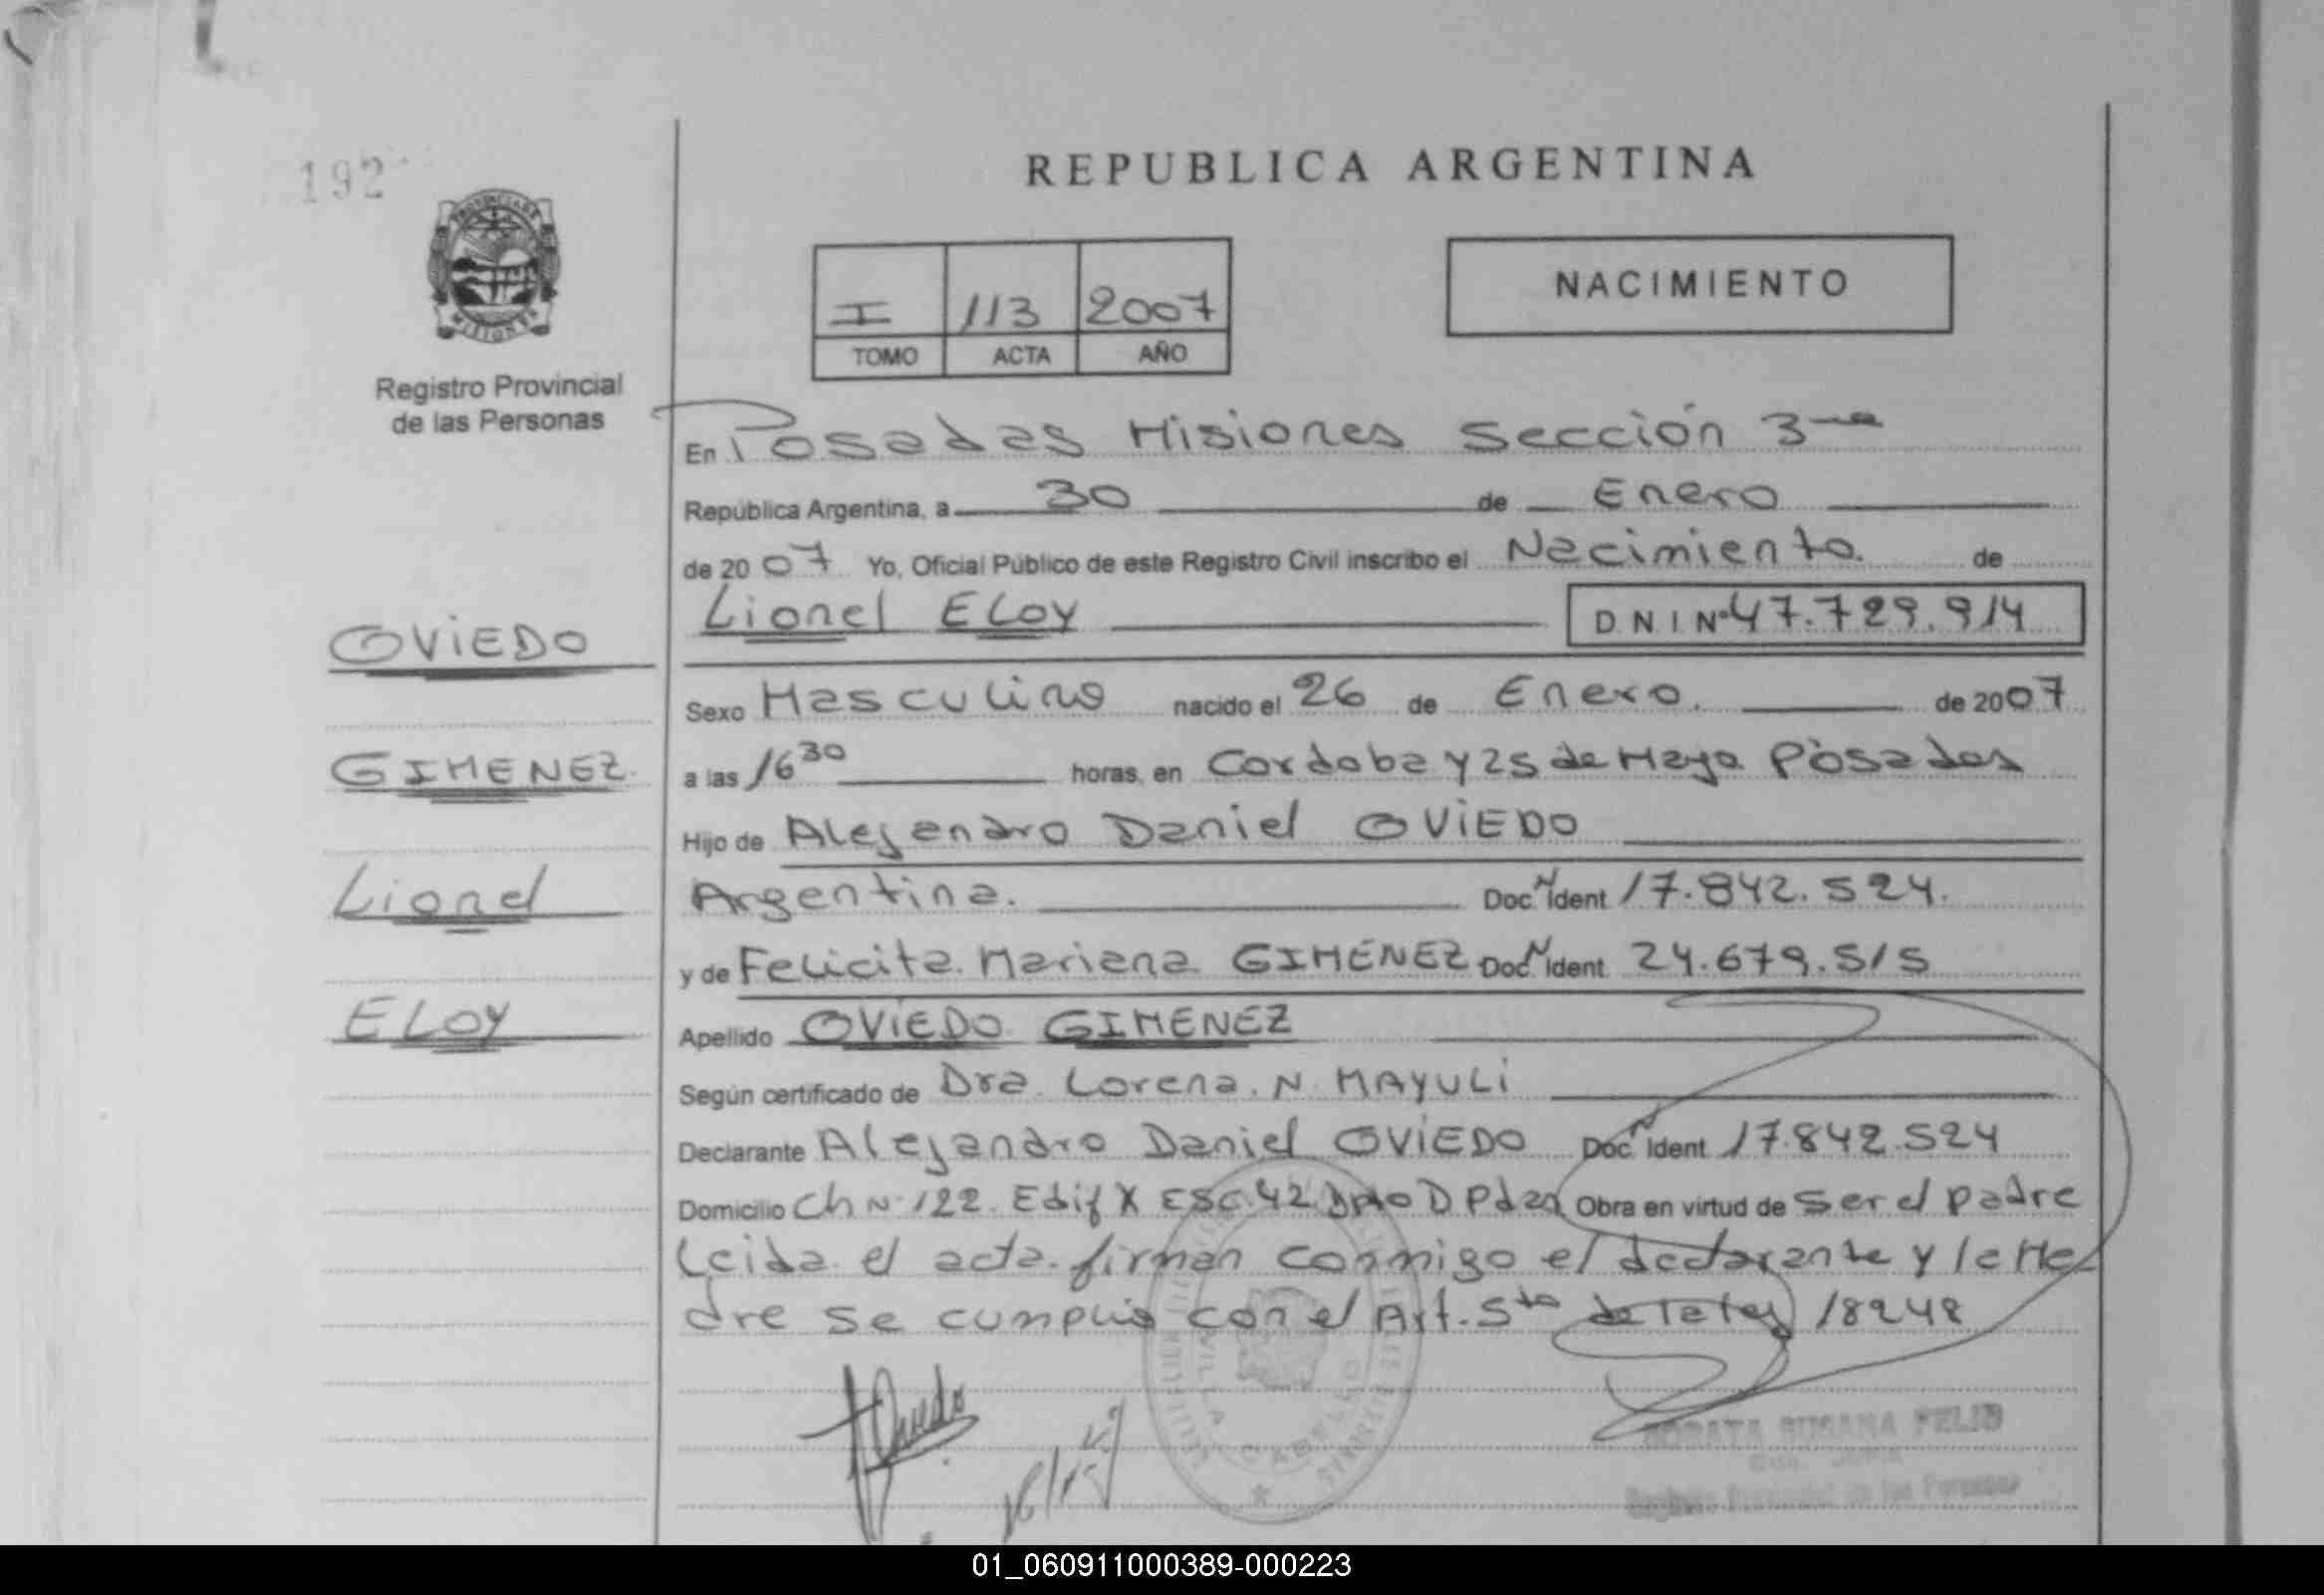 192
REPUBLICA ARGENTINA
PROVINCIA DE
MISIONES
Registro Provincial
de las Personas
I 113 2007
TOMO ACTA AÑO
NACIMIENTO
En Posadas Misiones Sección 3ra
República Argentina, a 30 de Enero
de 2007 Yo, Oficial Público de este Registro Civil inscribo el Nacimiento. de
Lionel ELOY
D N I Nº 47.729.914
OVIEDO
GIMENEZ.
Lionel
ELOY
Sexo Masculino nacido el 26 de Enero. de 2007
a las 16 30 horas, en Cordoba y 25 de Mayo Posadas
Hijo de Alejandro Daniel OVIEDO
Argentina. Doc. N Ident 17.842.524.
y de Felicita Mariana GIMENEZ Doc. N Ident 24.679.515
Apellido OVIEDO GIMENEZ
Según certificado de Dra. Lorena. N. MAYULI
Declarante Alejandro Daniel OVIEDO Doc. N Ident 17.842.524
Domicilio Ch Nº 122. Edif X ESC. 42 Dpto D Pdas Obra en virtud de ser el padre
Leida el acta firman conmigo el declarante y la Ma
dre se cumplió con el Art. 5to de la Ley 18248
Oviedo
SUSANA FELIP
Registro Provincial de las Personas
VILLA CABELLO
01_060911000389-000223